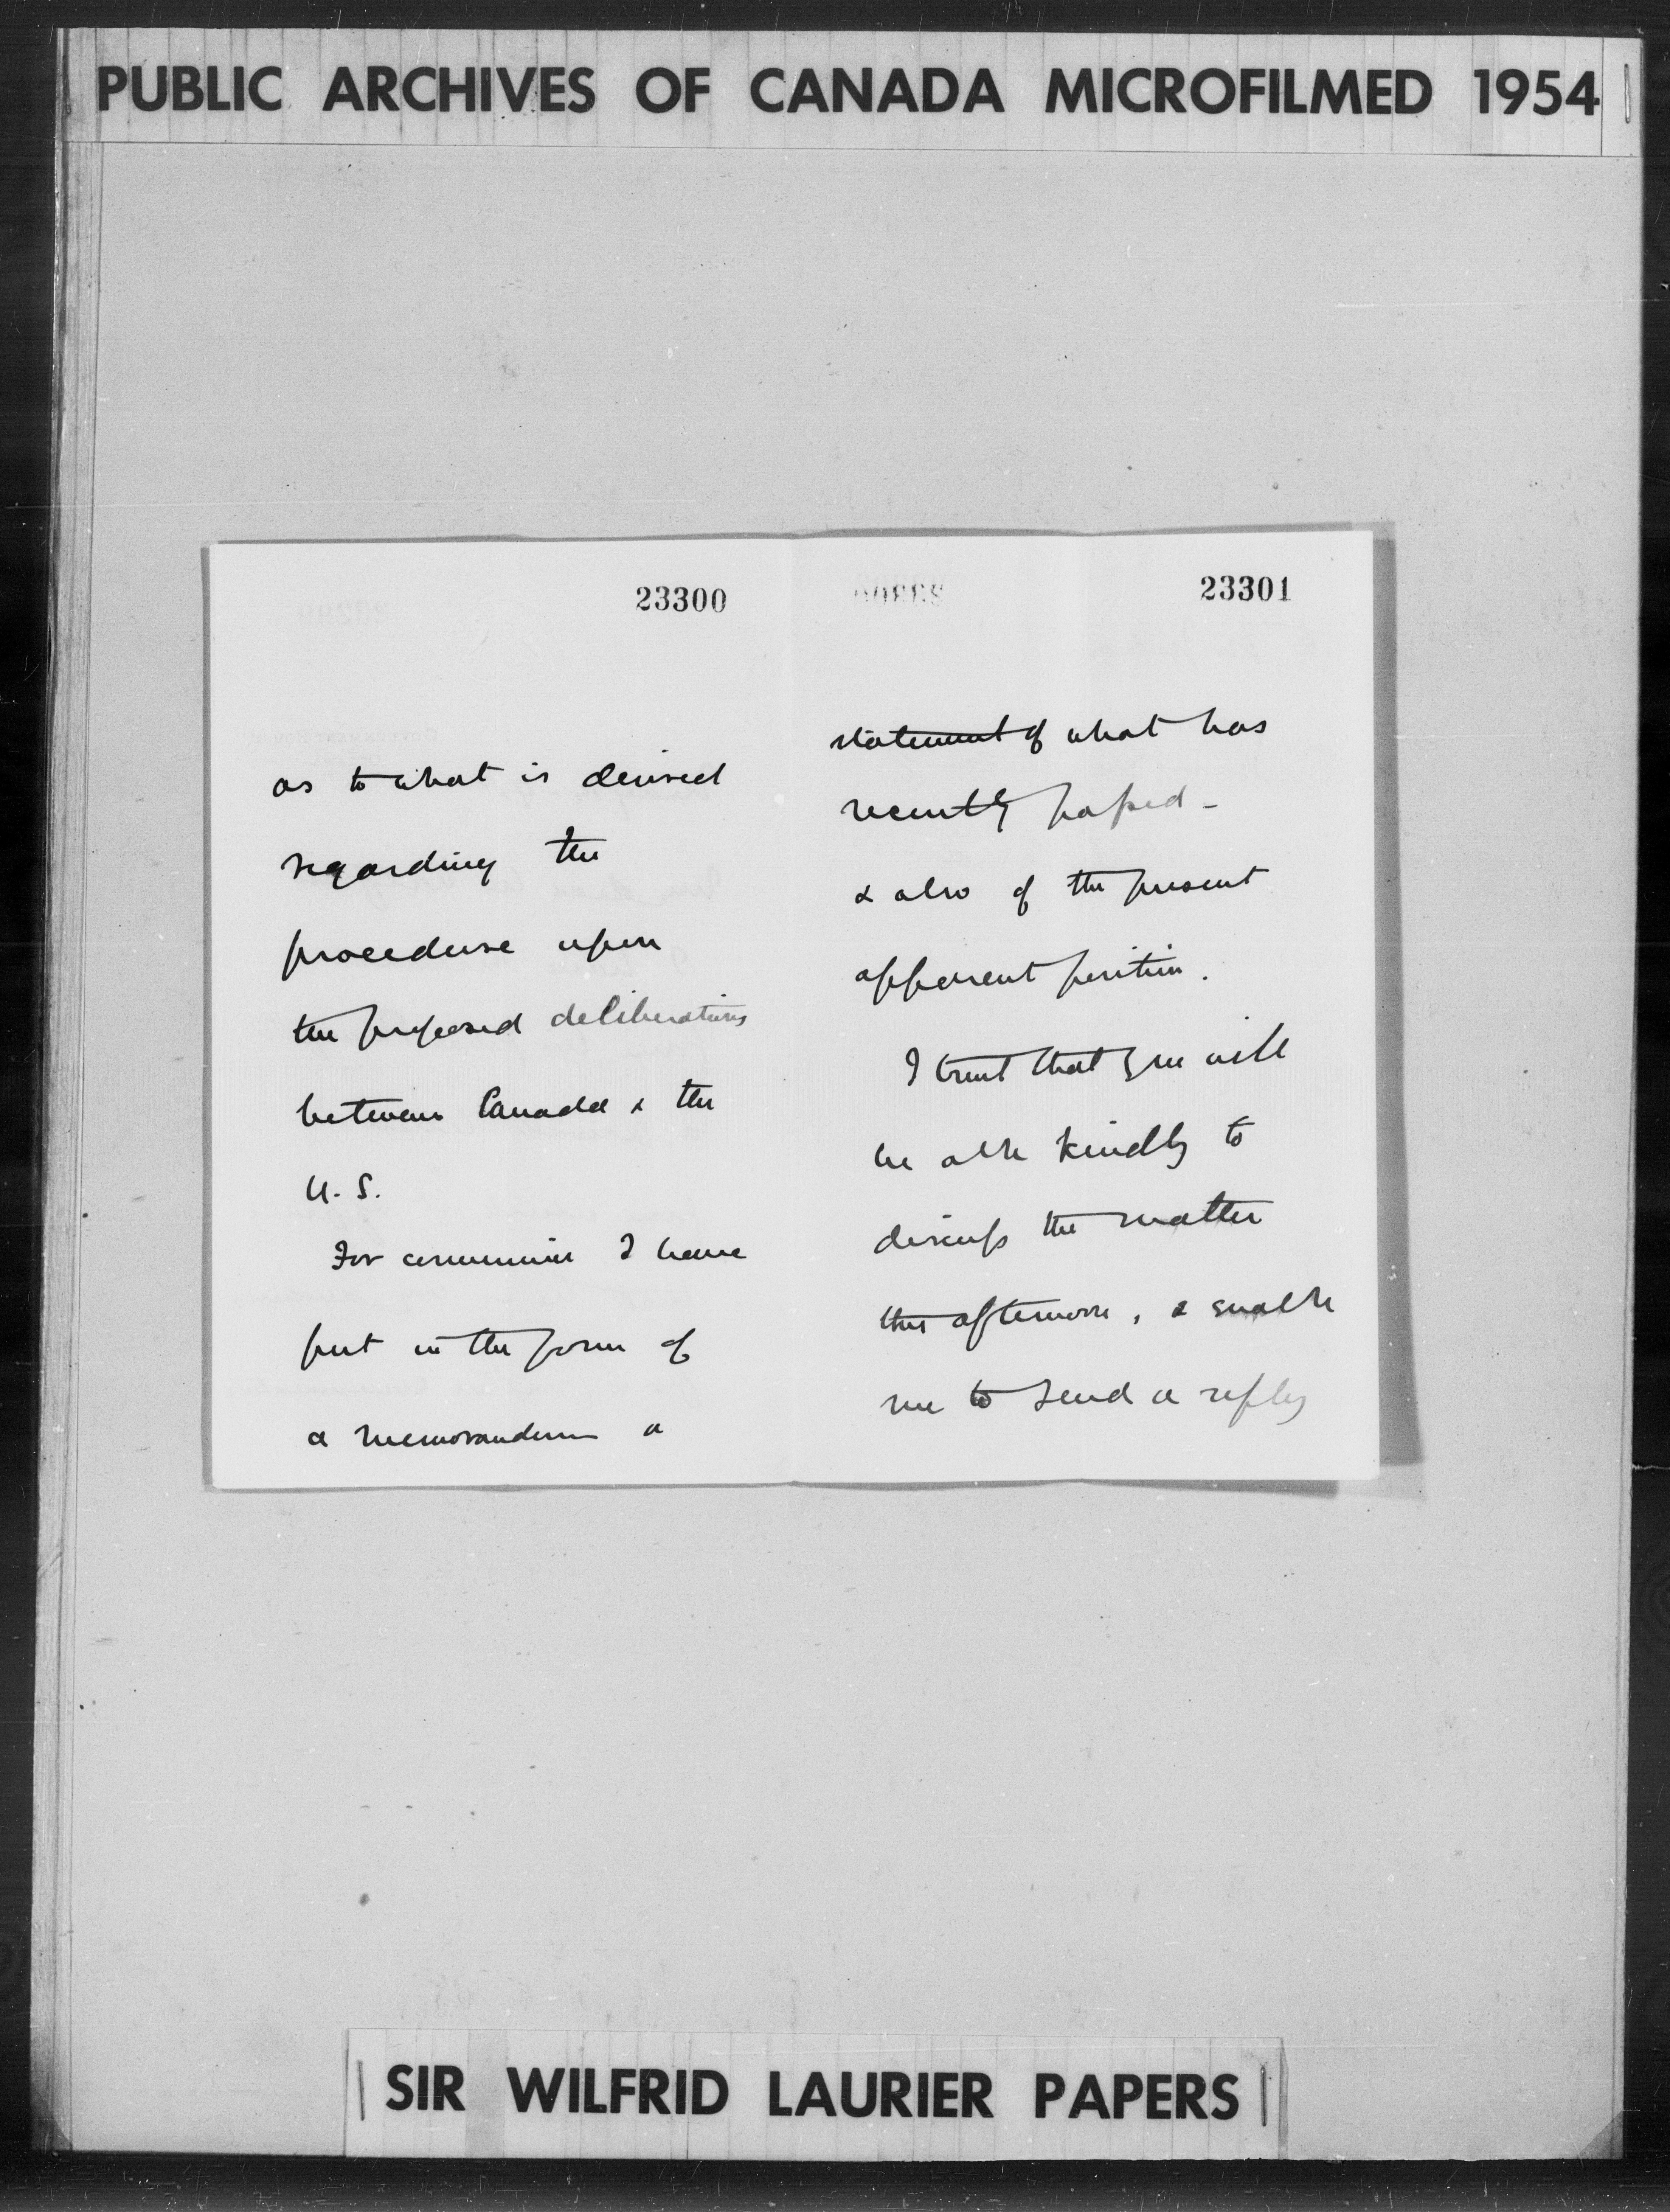 PUBLIC ARCHIVES OF CANADA MICROFILMED 1954
23300
as to what is desired
regarding the
procedure upon
the proposed deliberations
between Canada & the
U. S.
For convenience I have
put in the form of
a memorandum a
23301
statement of what has
recently passed -
& also of the present
apparent position.
I trust that you will
be able kindly to
discuss the matter
this afternoon, & enable
me to send a reply
SIR WILFRID LAURIER PAPERS